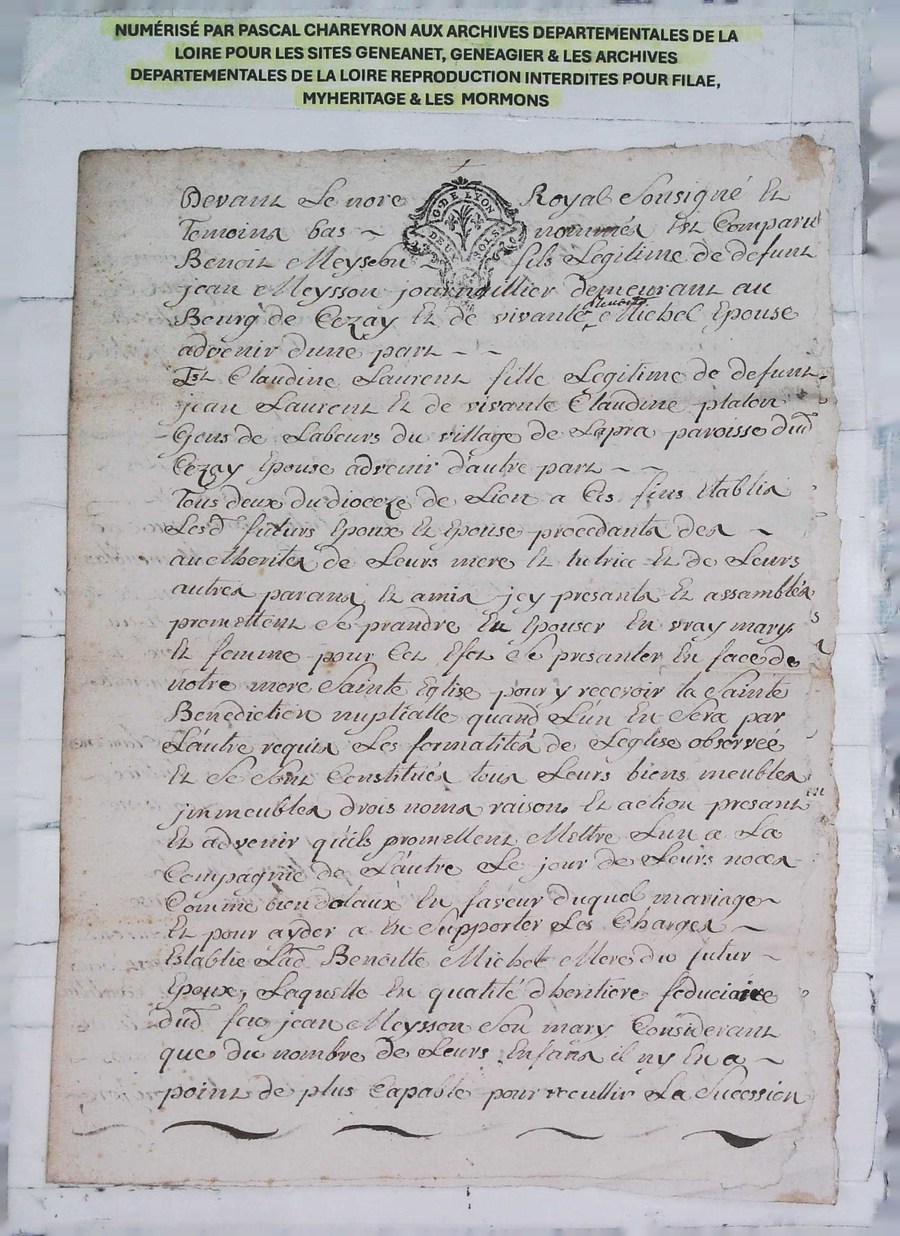 NUMÉRISÉ PAR PASCAL CHAREYRON AUX ARCHIVES DEPARTEMENTALES DE LA
LOIRE POUR LES SITES GENEANET, GENEAGIER & LES ARCHIVES
DEPARTEMENTALES DE LA LOIRE REPRODUCTION INTERDITES POUR FILAE,
MYHERITAGE & LES MORMONS
G. DE LYON
DEUX SOLS
Devant Le nore Royal Sousigné Et
Temoins bas ~ nommés Est Comparu
Benoit Meysson ~ fils Legitime de defunt
jean Meysson journaillier demeurant au
Bourg de Cezay Et de vivante Benoitte Michel Epouse
advenir dune part ~ ~
Est Claudine Laurent fille Legitime de defunt
jean Laurent Et de vivante Claudine platon
Gens de Labeurs du village de Lapra paroisse dud
Cezay Epouse advenir d'autre part ~ ~
Tous deux du dioceze de Lion a Ces fins Etablis
Lesd futurs Epoux Et Epouse procedants des ~
aucthorités de Leurs mere Et tutrice Et de Leurs
autres parans Et amis jcy presants Et assamblés
promettent Se prandre En Epouser En vray mary
Et femme pour Cet Efet Se presanter En face de
notre mere Sainte Eglise pour y recevoir la Sainte
Benediction nuptialle quand L'un En Sera par
L'autre requis Les formalités de L'eglise observée
Et Se Sont Constitués tous Leurs biens meubles
jmmeubles drois noms raisons Et action presant
Et advenir qu'ils promettent Mettre L'un a La
Compagnie de L'autre Le jour de Leurs noces
Comme bien dotaux En faveur duquel mariage ~
Et pour ayder a En Supporter Les Charges ~
Establie Lad Benoitte Michel Mere du futur ~
Epoux, Laquelle En qualité d'heritiere feduciaire
dud feu jean Meysson Son mary Considerant
que du nombre de Leurs Enfans il ny En a ~
point de plus Capable pour recullir La Sucession